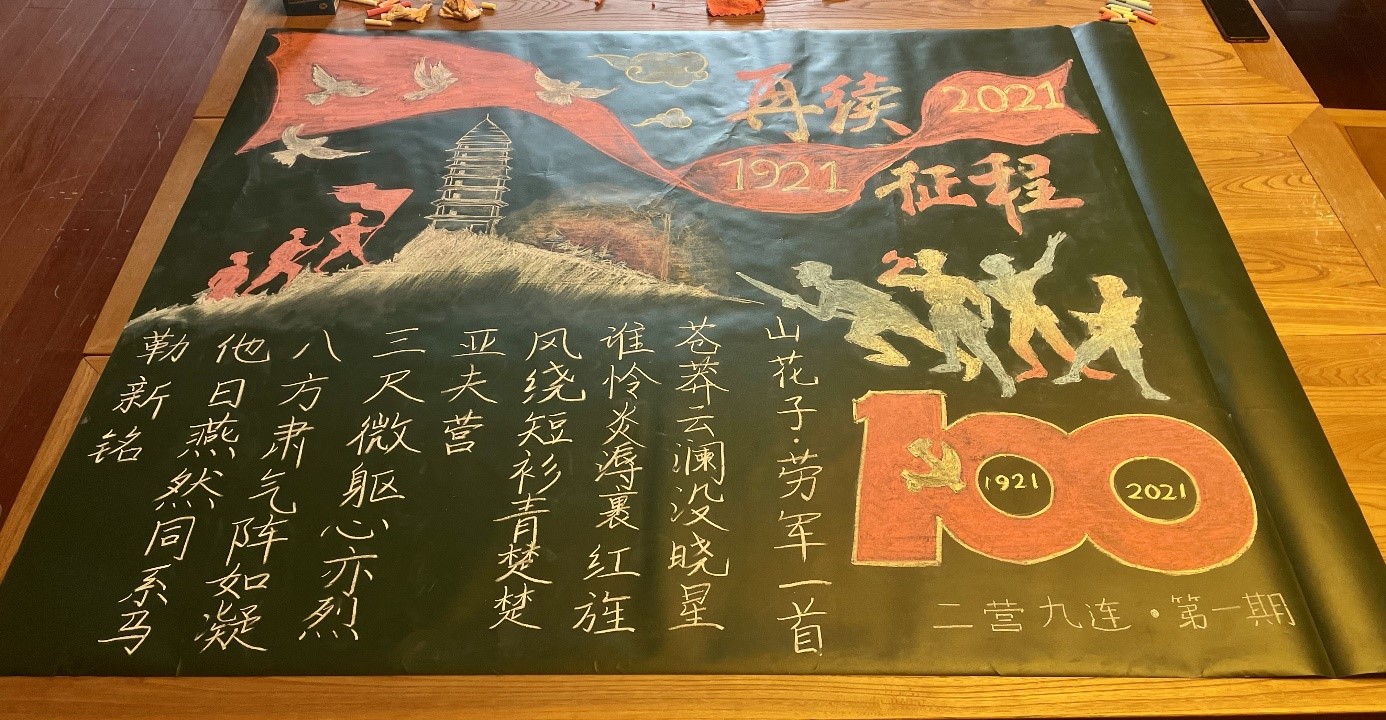 再续
征程
1921
2021
山花子·劳军一首
苍莽云澜没晓星
谁怜炎溽裹红旌
风绕短衫青楚楚
亚夫营
三尺微躯心亦烈
八方肃气阵如凝
他日燕然同系马
勒新铭
100
1921
2021
二营九连·第一期